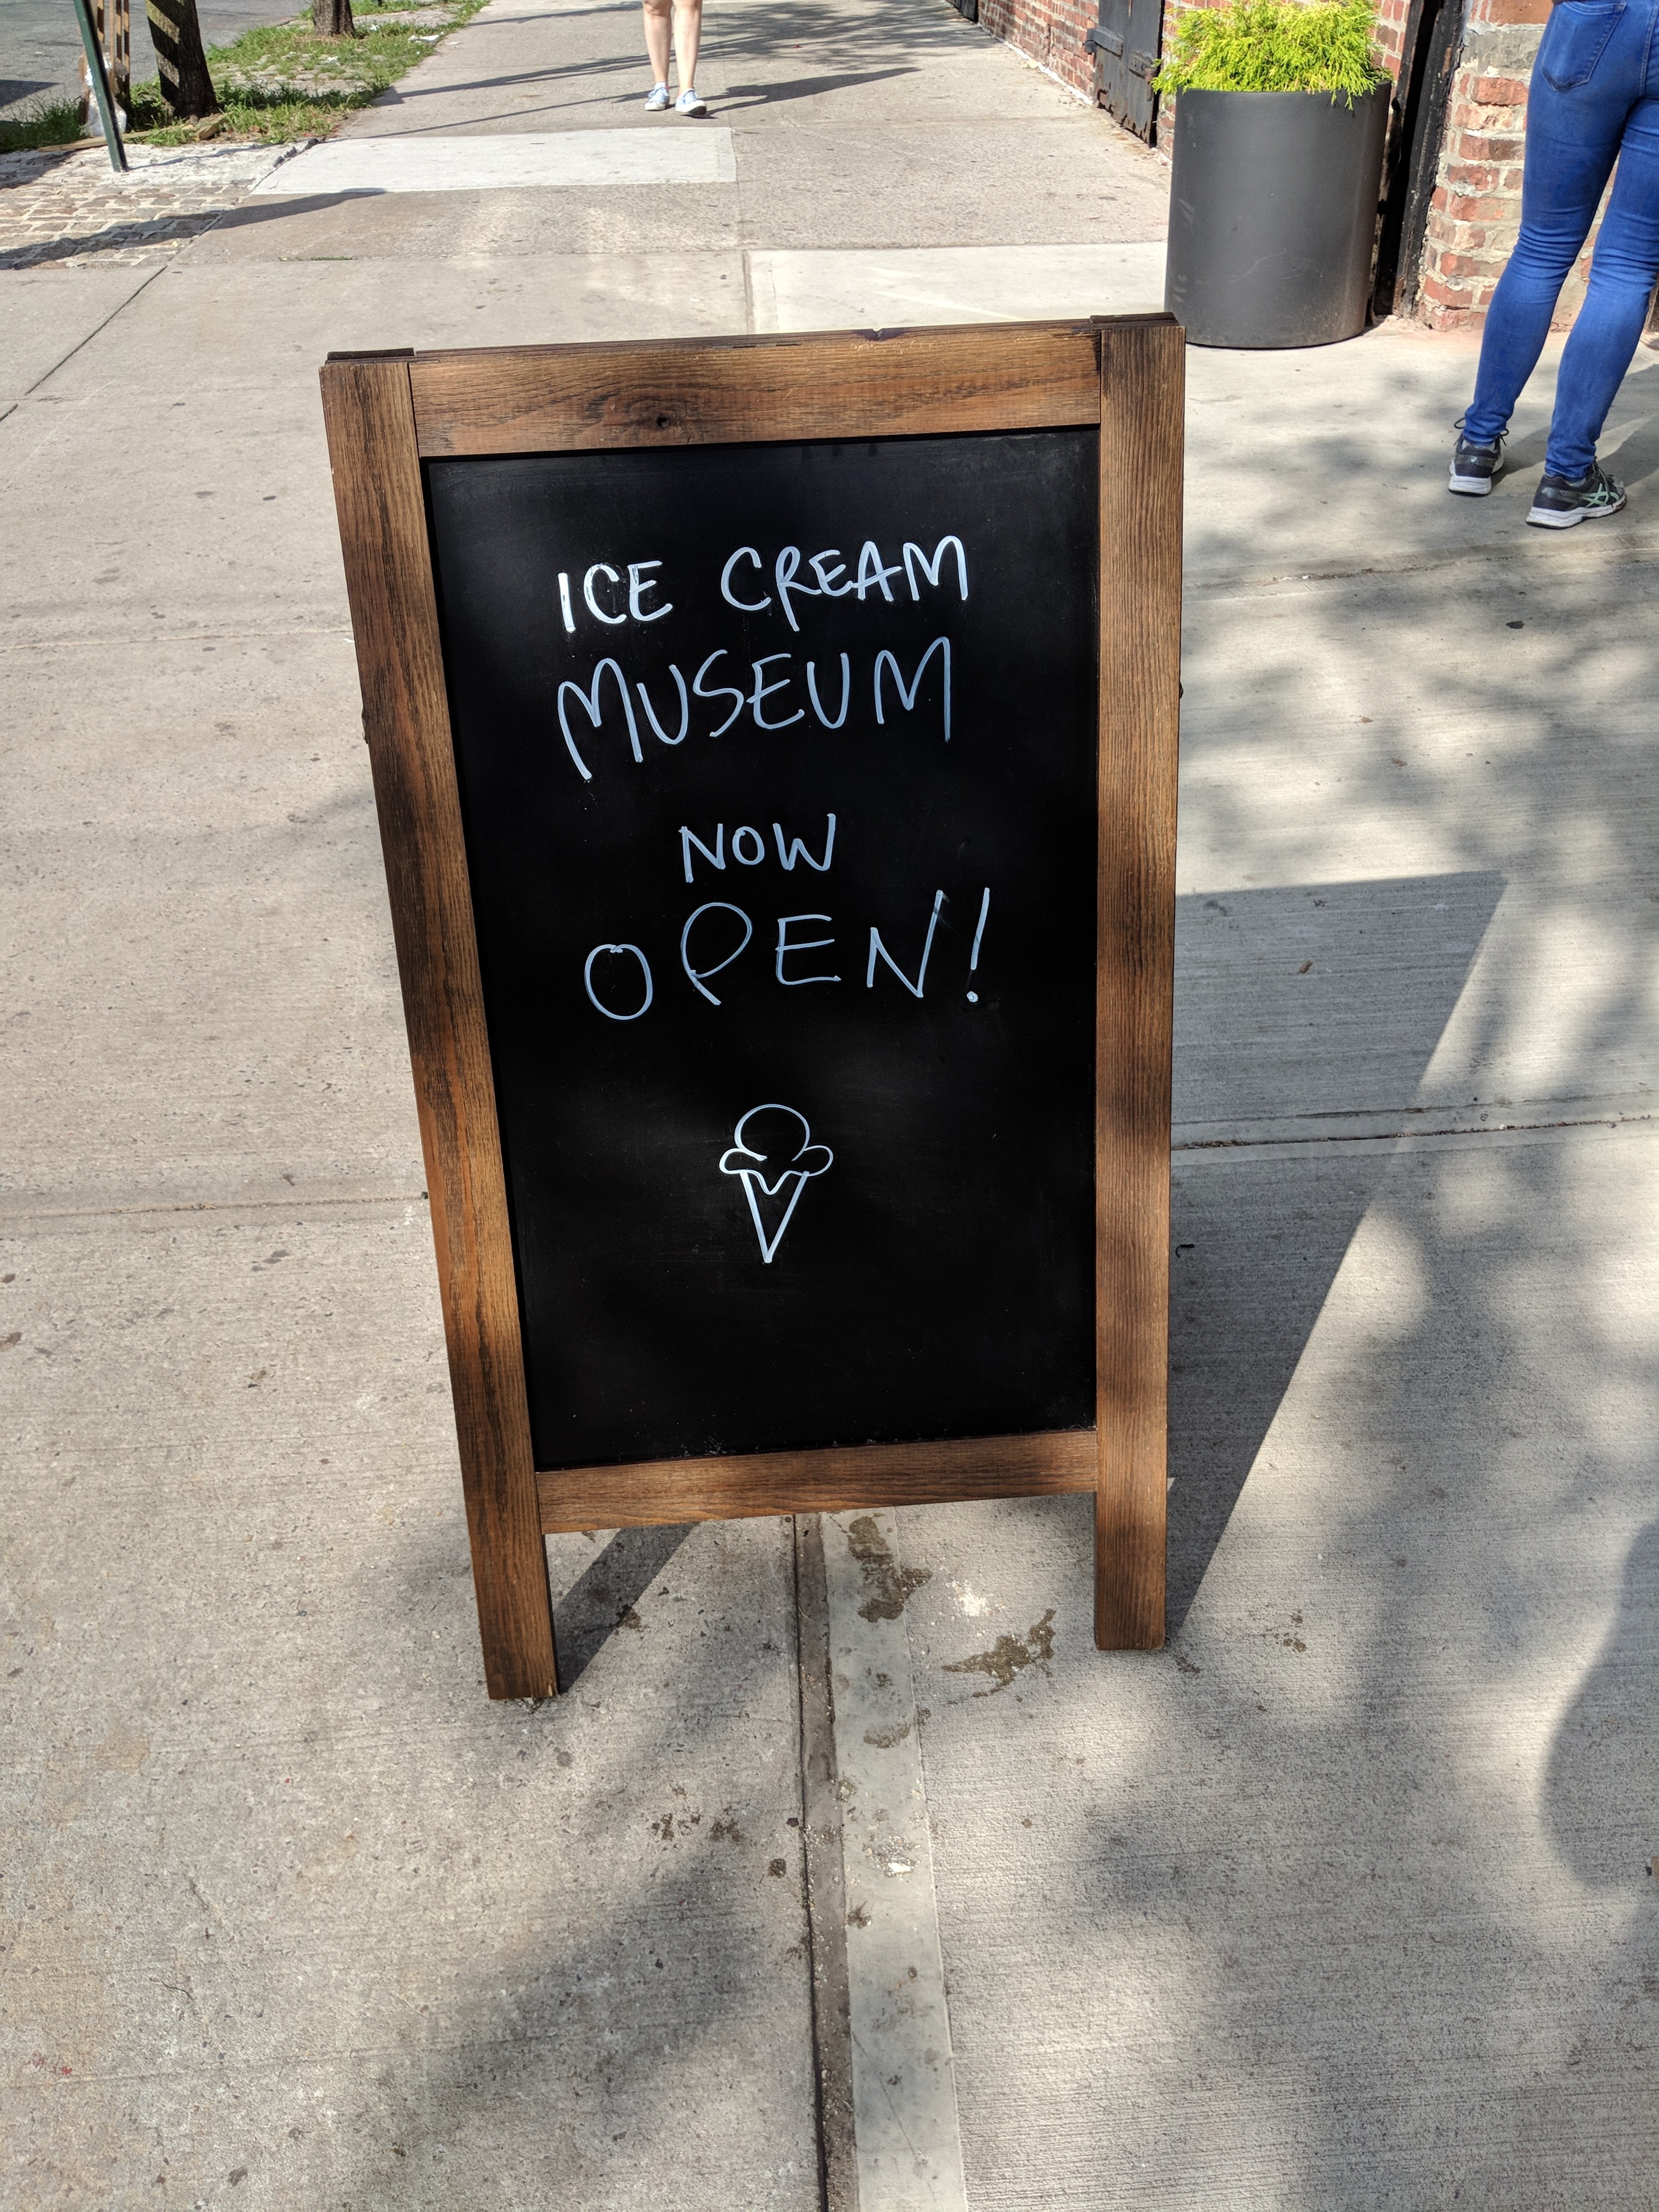 ICE CREAM
MUSEUM
NOW
OPEN!